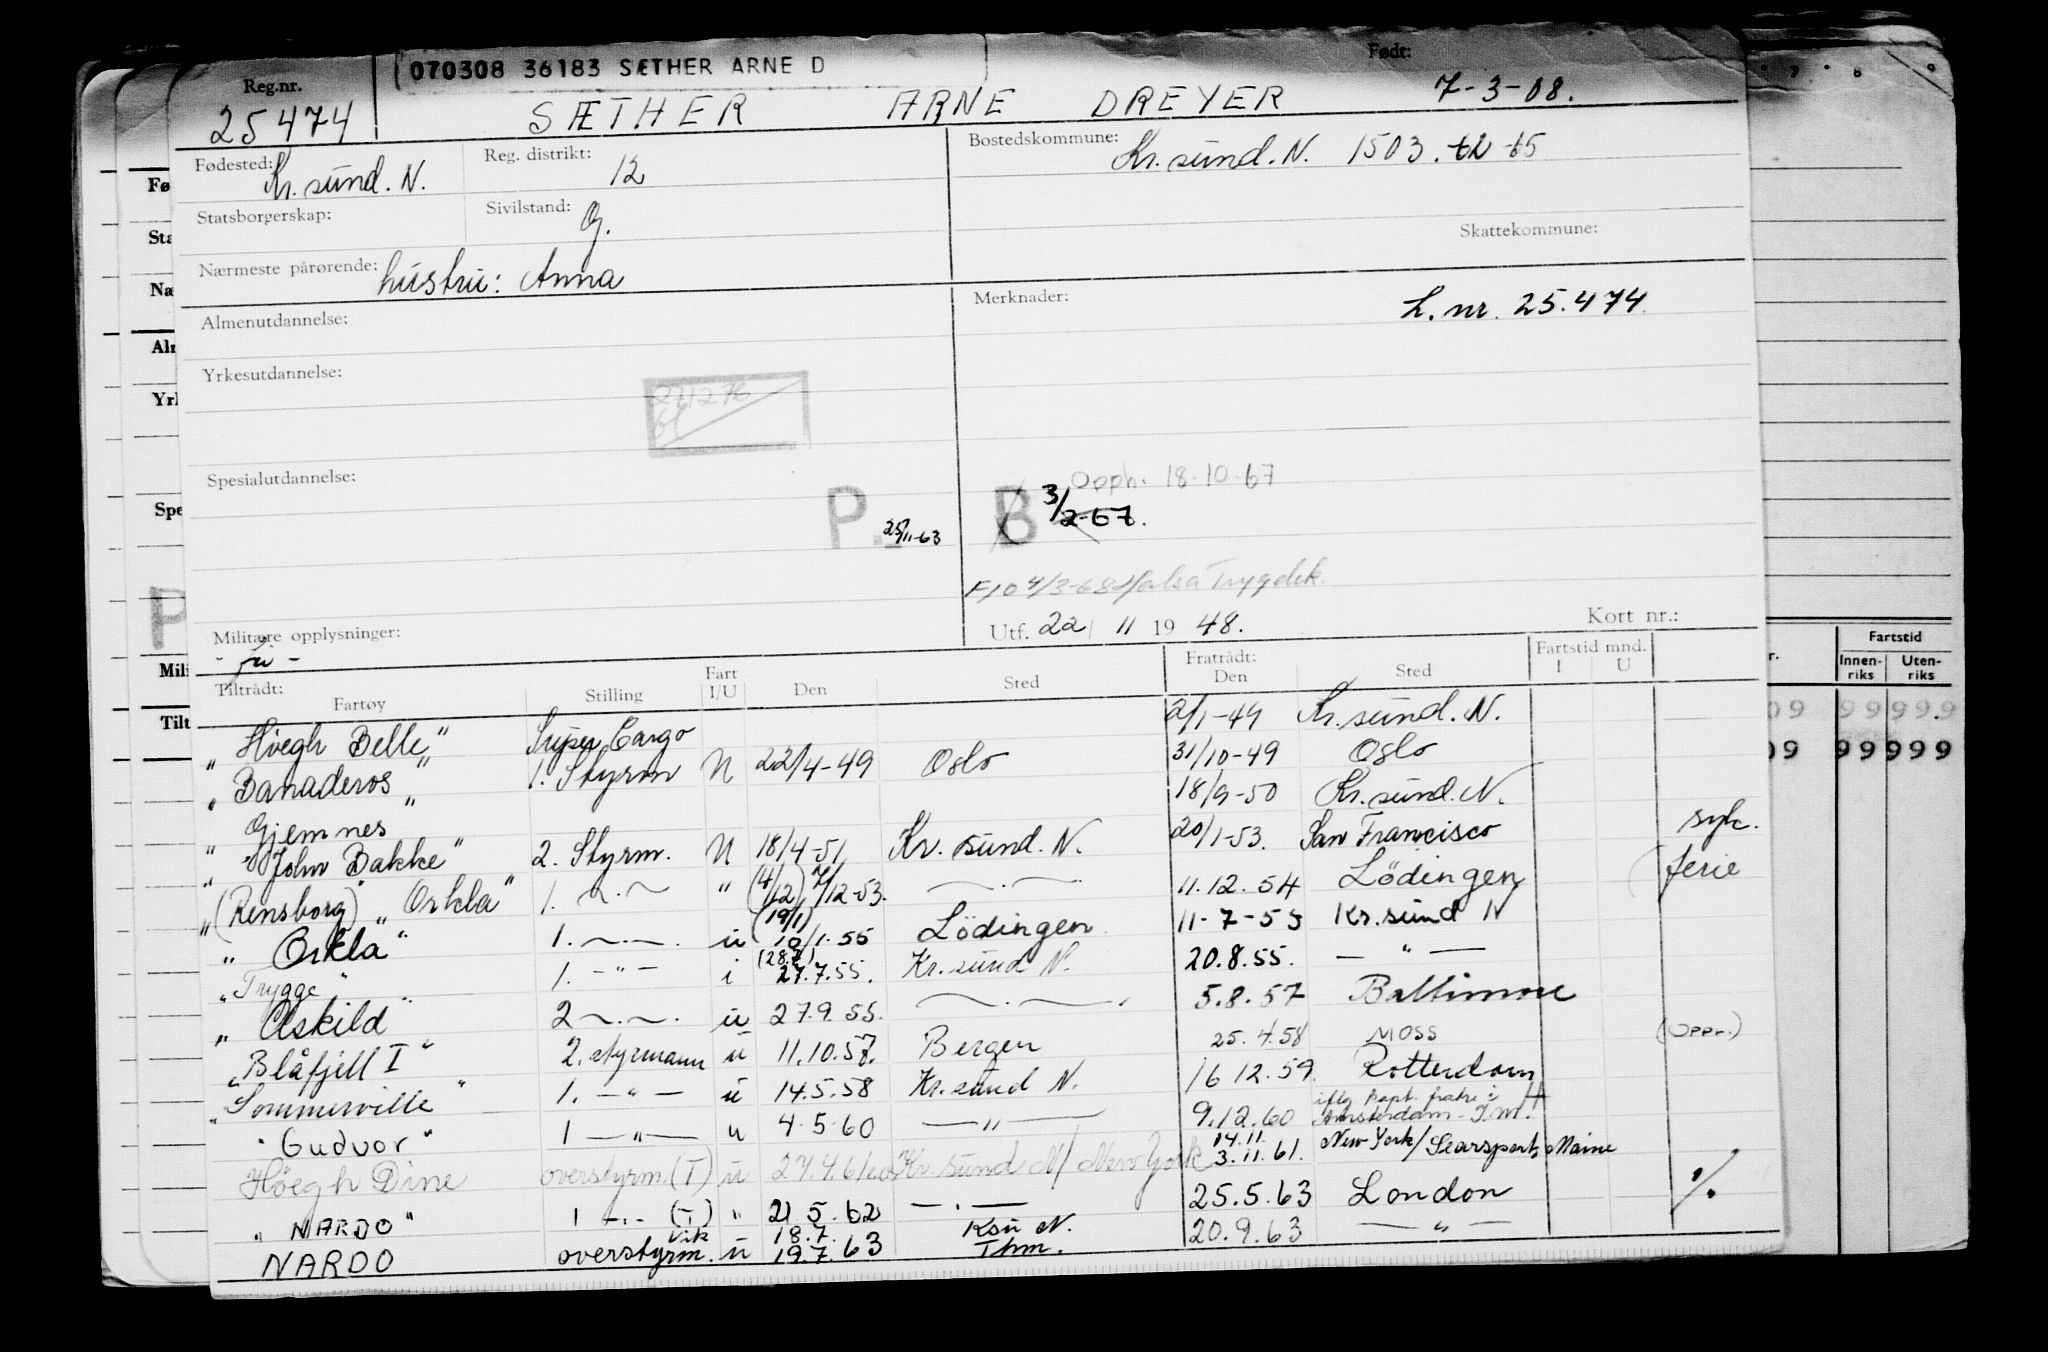 070308 36183 SÆTHER ARNE D
Reg.nr. Født:
25474 SÆTHER ARNE DREYER 7-3-08.
Fødested: Kr. sund. N. Reg. distrikt: 12 Bostedskommune: Kr. sund. N. 1503. t2 t5
Statsborgerskap: Sivilstand: G. Skattekommune:
Nærmeste pårørende: hustru: Anna
Almenutdannelse: Merknader: L. nr. 25.474
Yrkesutdannelse:
Spesialutdannelse: Opph. 18-10-67
P. 25/11-63 B 3/2-67.
F10 4/3-68 Halsa Trygdek.
Militære opplysninger: Utf. 22/ 11 19 48. Kort nr.:
Tiltrådt: Fart Fratrådt: Fartstid mnd.
Fartøy Stilling I/U Den Sted Den Sted I U
"Höegh Belle" Super Cargo 2/1-49 Kr. sund. N.
"Banaderos" 1. Styrm U 22/4-49 Oslo 31/10-49 Oslo
"Gjemnes" 18/9-50 Kr. sund. N.
"John Bakke" 2. Styrm. U 18/4-51 Kr. sund. N. 20/1-53. San Francisco syk.
"(Rensborg) "Orkla" 1. ~.~ " (4/12) 7/12-53. —.— 11.12.54 Lödingen ferie
"Orkla" 1. ~.—. u (19/1) 10/1.55 Lödingen 11-7-55 Kr. sund N
"Trygge" 1. -"- i (28.7) 27.7.55. Kr. sund N. 20.8.55. — " —
"Askild" 2 ~.~. u 27.9.55. —.— 5.8.57 Baltimore
"Blåfjell I" 2. styrmann u 11.10.57. Bergen 25.4.58 MOSS (Oppr.)
"Sommerville" 1. -"- u 14.5.58 Kr. sund N. 16 12.59. Rotterdam
"Gudvor" 1 —"— u 4.5.60 —"— 9.12.60 iflg kapt. fratr i Amsterdam
Höegh Dine overstyrm. (T) u 27.4.61 Kr. sund N/ New York 14.11. 3.11.61. New York/ Searsport, Maine
"NARDO" 1 -.- (T) " 21 5.62 —.— 25.5.63 London %
NARDO vik overstyrm. u 18.7. 19.7.63 Ksu N. Thm. 20.9.63 — " —
Fartstid
Innenriks Utenriks
09 99 999
09 99 999